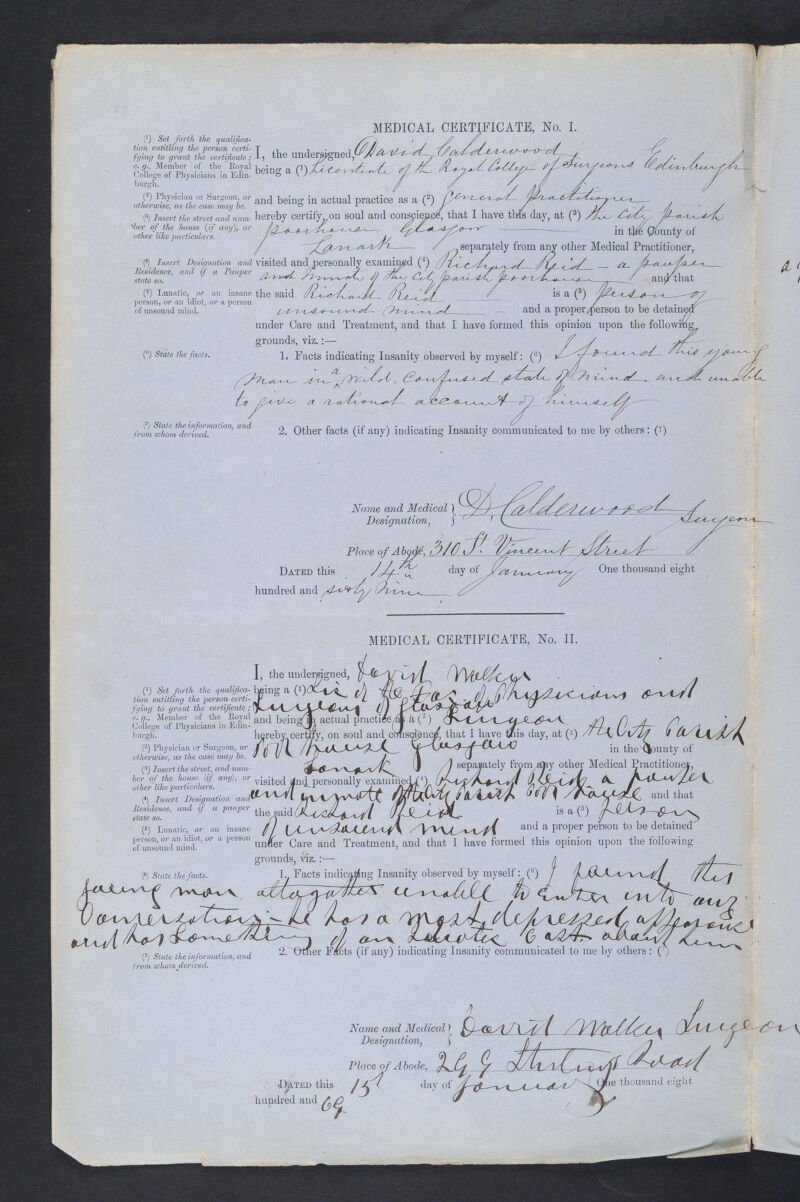 MEDICAL CERTIFICATE, No. I.
(1) Set forth the qualifica-
tion entitling the person certi-
fying to grant the certificate;
e.g., Member of the Royal
College of Physicians in Edin-
burgh.
I, the undersigned, David Calderwood
being a (1) Licentiate of the Royal College of Surgeons Edinburgh
(2) Physician or Surgeon, or
otherwise, as the case may be.
and being in actual practice as a (2) General Practitioner
(3) Insert the street and num-
ber of the house (if any), or
other like particulars.
hereby certify, on soul and conscience, that I have this day, at (3) the City parish
poorhouse Glasgow in the County of
Lanark separately from any other Medical Practitioner,
(4) Insert Designation and
Residence, and if a Pauper
state so.
visited and personally examined (4) Richard Reid – a pauper
and Inmate of the City parish poorhouse and that
(5) Lunatic, or an insane
person, or an idiot, or a person
of unsound mind.
the said Richard Reid is a (5) person of
unsound mind – and a proper person to be detained
under Care and Treatment, and that I have formed this opinion upon the following
grounds, viz.:—
(6) State the facts.
1. Facts indicating Insanity observed by myself: (6) I found this young
man in a wild confused state of mind and unable
to give a rational account of himself
(7) State the information, and
from whom derived.
2. Other facts (if any) indicating Insanity communicated to me by others: (7)
Name and Medical Designation, D. Calderwood Surgeon
Place of Abode, 310 St. Vincent Street
DATED this 14th day of January One thousand eight
hundred and sixty nine
MEDICAL CERTIFICATE, No. II.
I, the undersigned, David Walker
(1) Set forth the qualifica-
tion entitling the person certi-
fying to grant the certificate;
e.g., Member of the Royal
College of Physicians in Edin-
burgh.
being a (1) Lic of the Fac of Physicians and
Surgeons of Glasgow
and being in actual practice as a (2) Surgeon
(2) Physician or Surgeon, or
otherwise, as the case may be.
hereby certify, on soul and conscience, that I have this day, at (3) the City Parish
Poor house Glasgow in the County of
(3) Insert the street, and num-
ber of the house (if any), or
other like particulars.
Lanark separately from any other Medical Practitioner,
visited and personally examined (4) Richard Reid a pauper
(4) Insert Designation and
Residence, and if a pauper
state so.
and inmate of the City Parish Poor house and that
the said Richard Reid is a (5) person
(5) Lunatic, or an insane
person, or an idiot, or a person
of unsound mind.
of unsound mind and a proper person to be detained
under Care and Treatment, and that I have formed this opinion upon the following
grounds, viz.:—
(6) State the facts.
1. Facts indicating Insanity observed by myself: (6) I found this
young man altogather unable to enter into any
Conversation – he has a most depressed appearance
and has Something of an Cast about him
(7) State the information, and
from whom derived.
2. Other Facts (if any) indicating Insanity communicated to me by others: (7)
Name and Medical Designation, David Walker Surgeon
Place of Abode, Stirling Road
DATED this 15 day of January One thousand eight
hundred and 69